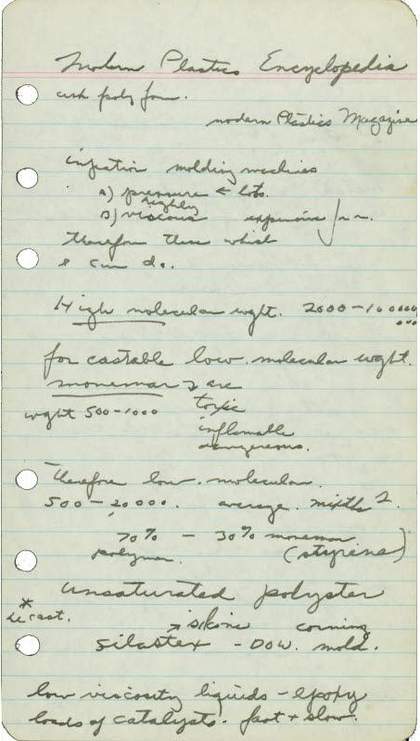 Modern Plastics Encyclopedia
ask poly form.
modern Plastics Magazine
injection molding machines
A) pressure ← lots.
highly
B) viscous expensive
therefore these which
I can do.
High molecular wght. 2000-100000
000
for castable low molecular wght.
monomer are
wght 500-1000 toxic
inflamable
dangerous.
Therefore low molecular.
500-20000. average.
70% - 30% monomer
polymer. (styrene)
unsaturated polyster
*
be cast.
silicone corning
silastex - DOW. mold.
low viscosity liquids - epoxy
loads of catalysts. fast + slow.